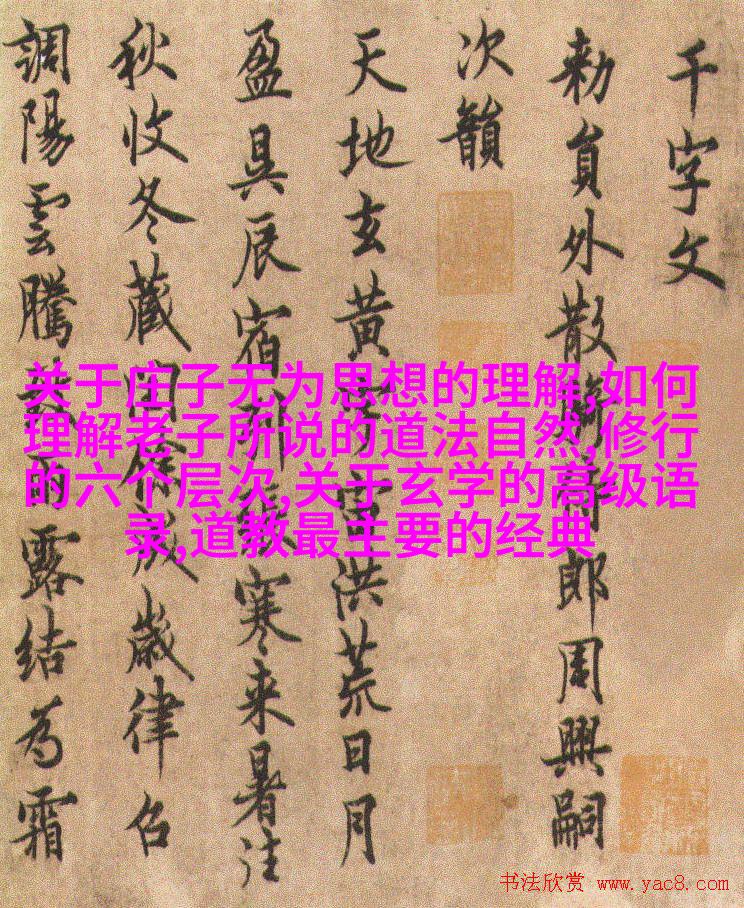 千字文
勑員外散騎侍郎周興嗣
次韻
天地玄黃宇宙洪荒日月
盈昃辰宿列張寒来暑往
秋收冬藏閏餘成歲律吕
調陽雲騰致雨露結為霜
关于庄子无为思想的理解,如何
理解老子所说的道法自然,修行
的六个层次,关于玄学的高级语
录,道教最主要的经典
书法欣赏 www.yac8.com